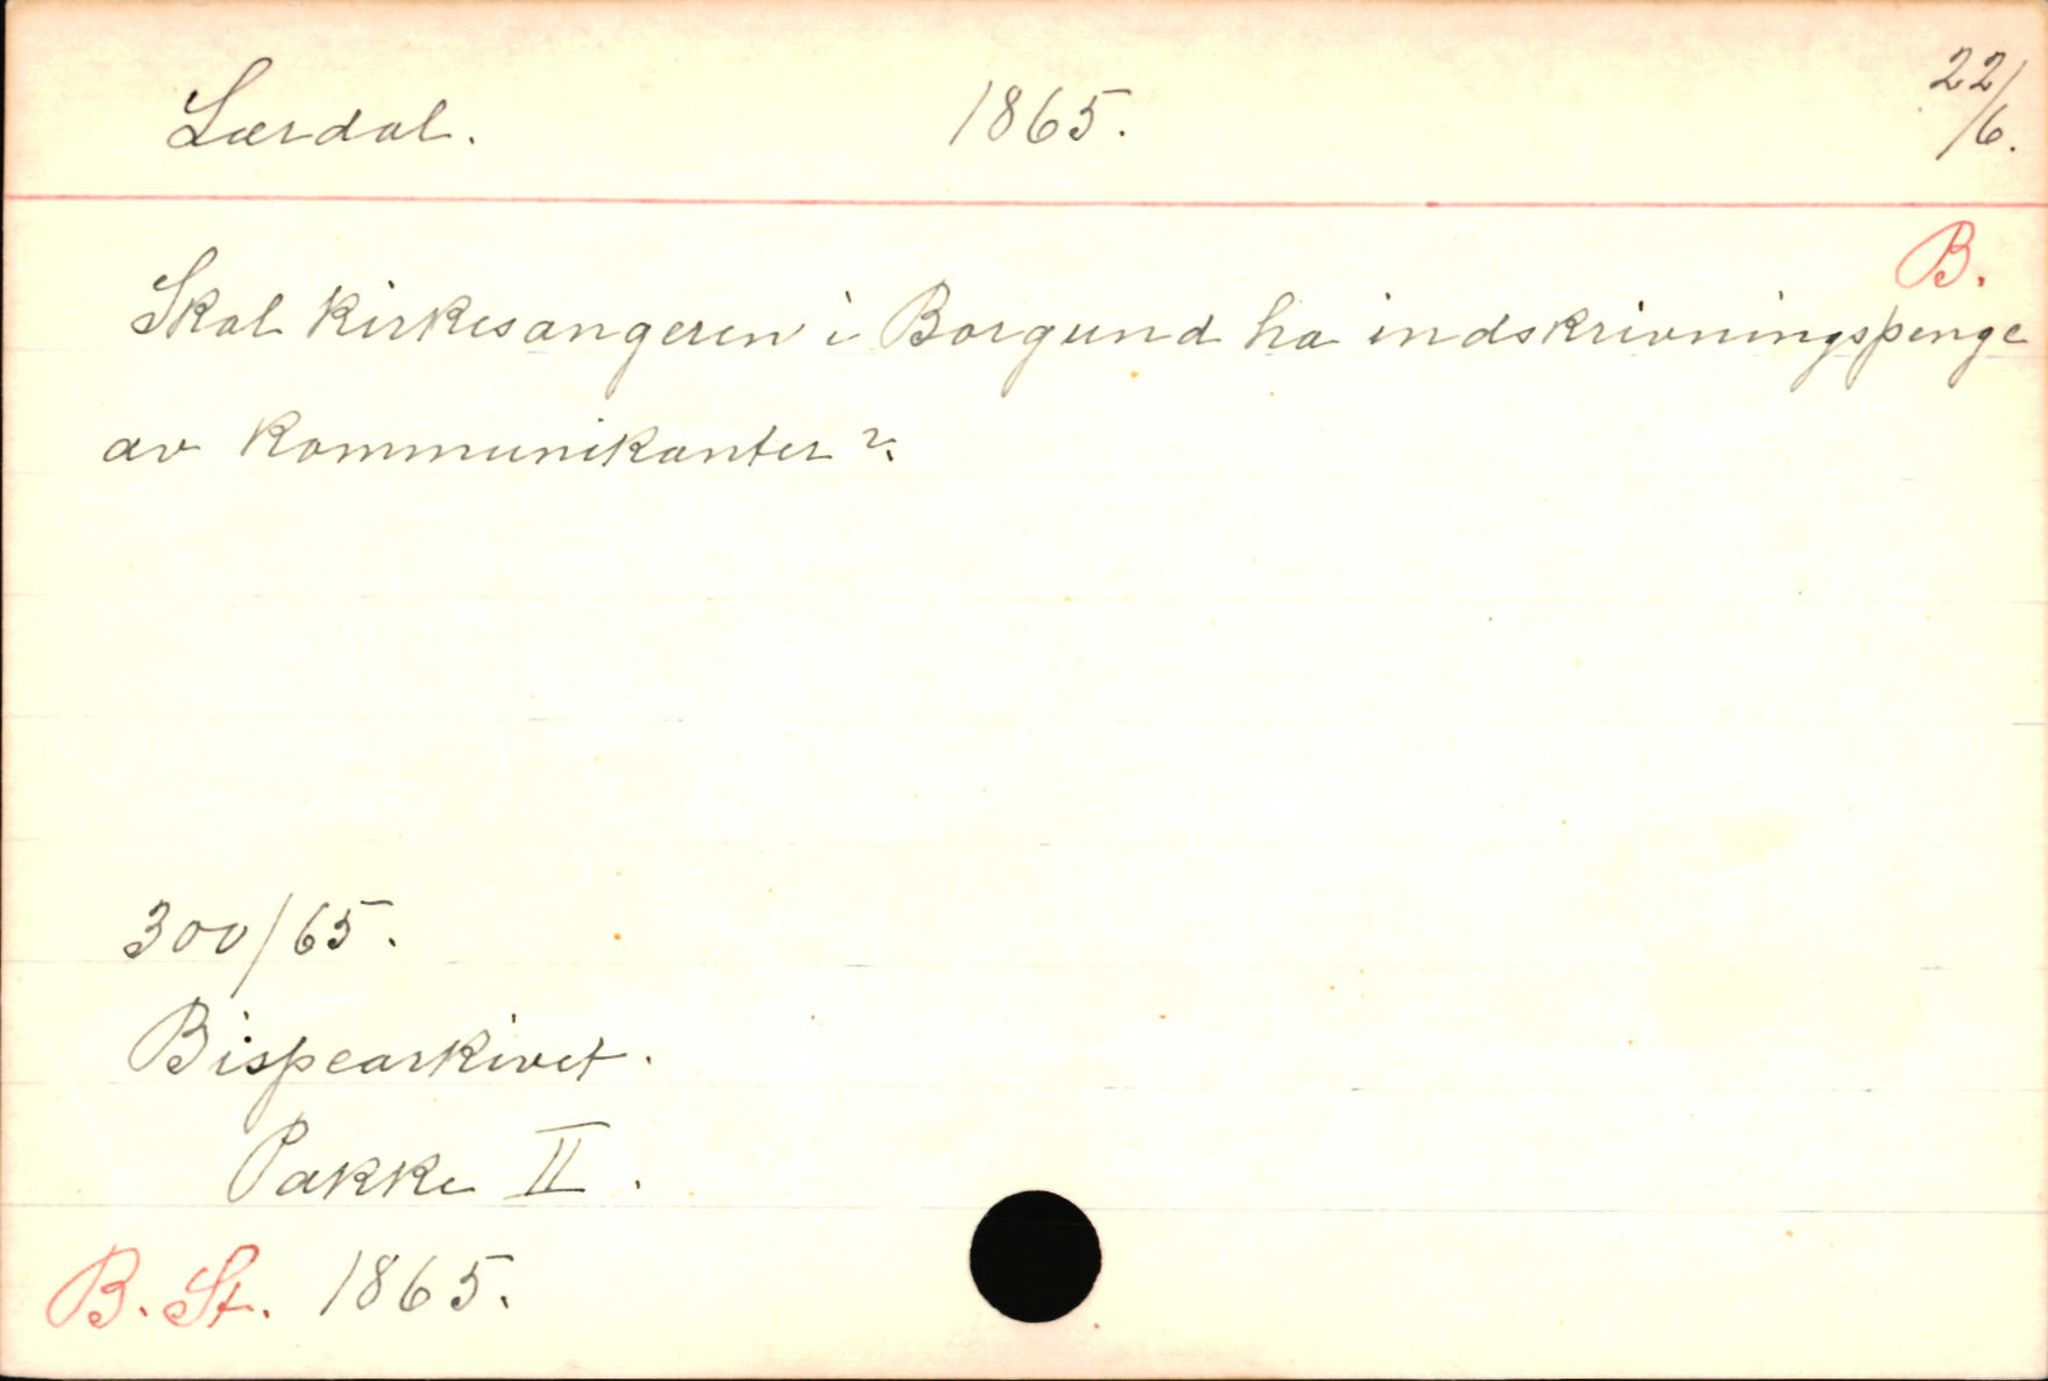 Lærdal. 1865. 22/6.
B.
Skal kirkesangeren i Borgund ha indskrivningspenge
av kommunikanter?
300/65.
Bispearkivet.
Pakke II.
B. St. 1865.